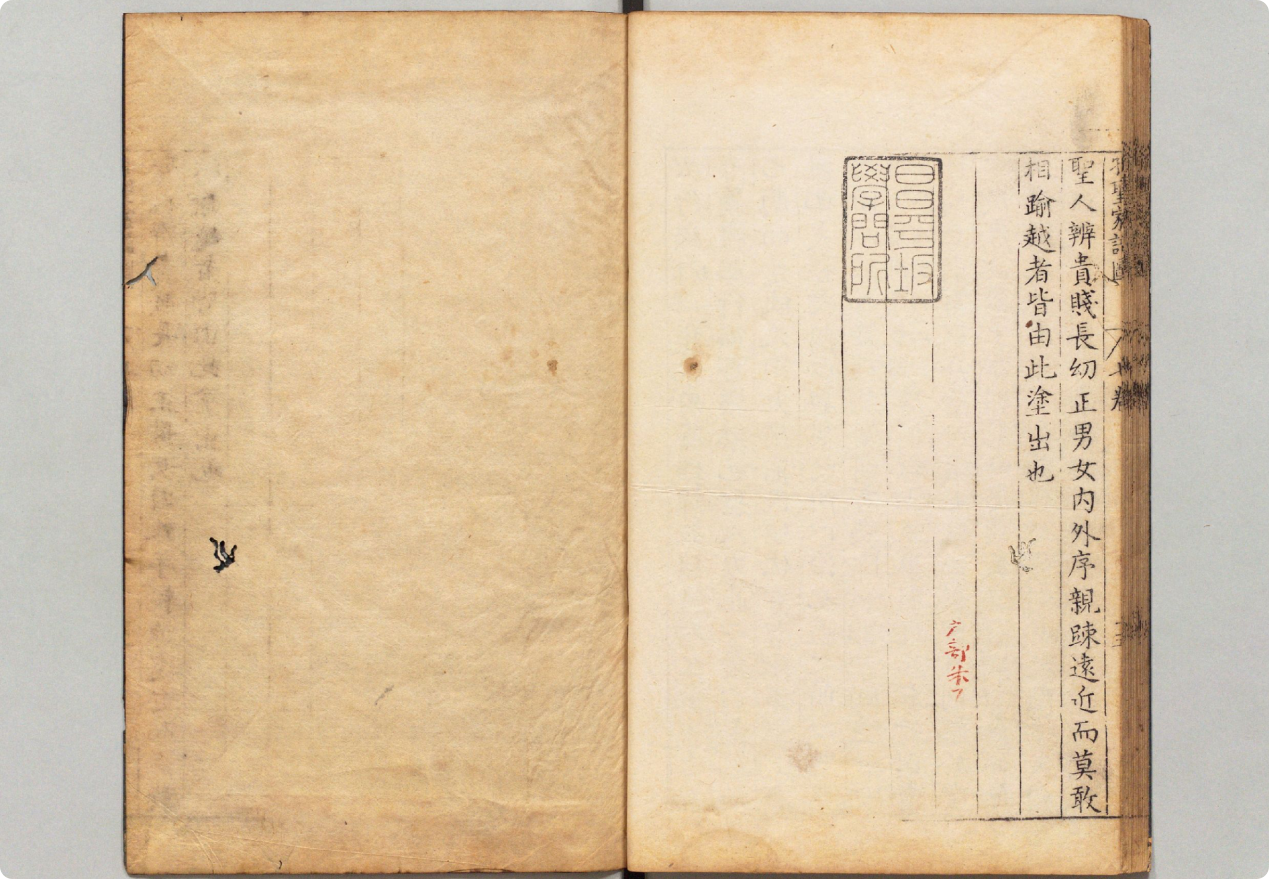 聖人辨貴賤長幼正男女内外序親踈遠近而莫敢
相踰越者皆由此塗出也
昌平坂
學問所